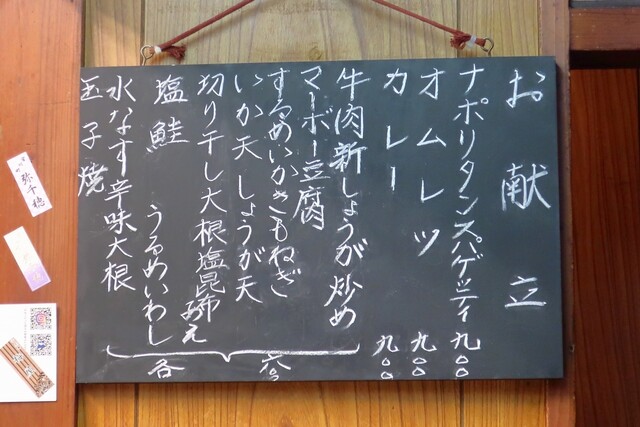 お献立
ナポリタンスパゲッティ 九〇〇
オムレツ 九〇〇
カレー 九〇〇
牛肉新しょうが炒め
マーボー豆腐
するめいかきもねぎ
いか天 しょうが天
切り干し大根塩昆布和え
塩鮭 うるめいわし
水なす辛味大根
玉子焼
各 六〇〇
弥千穂